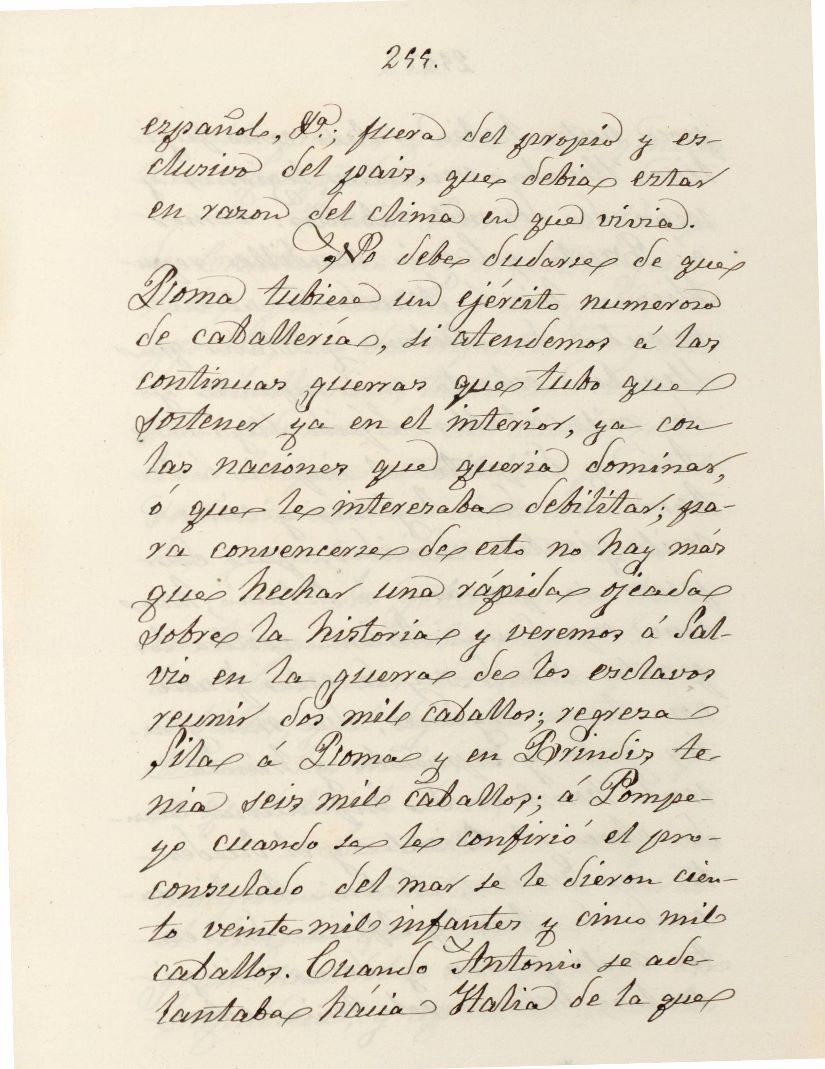 255.
español, &a.; fuera del propio y es-
clusivo del pais, que debia estar
en razon del clima en que vivia.
No debe dudarse de que
Roma tubiese un ejército numeroso
de caballería, si atendemos á las
continuas guerras que tubo que
sostener ya en el interior, ya con
las naciones que queria dominar,
ó que le interesaba debilitar; pa-
ra convencerse de esto no hay más
que hechar una rápida ojeada
sobre la historia y veremos á Sal-
vio en la guerra de los esclavos
reunir dos mil caballos; regresa
Sila á Roma y en Brindis te-
nia seis mil caballos; á Pompe-
yo cuando se le confirió el pro-
consulado del mar se le dieron cien-
to veinte mil infantes y cinco mil
caballos. Cuando Antonio se ade-
lantaba hácia Italia de la que